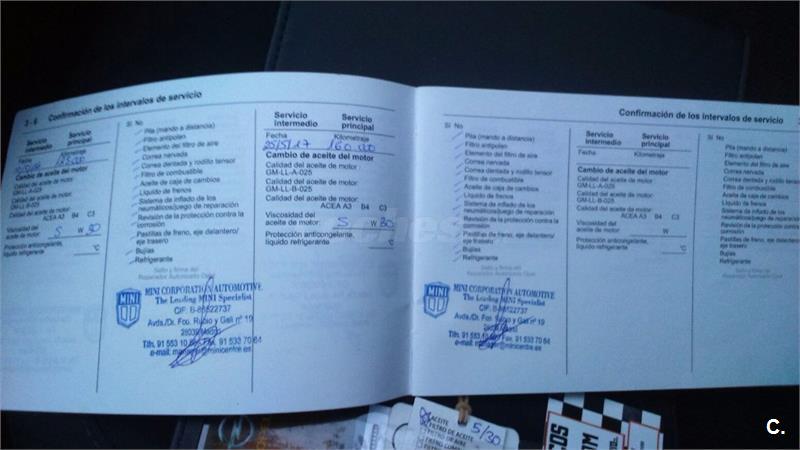 3 - 6 Confirmación de los intervalos de servicio
Servicio intermedio Servicio principal
Fecha Kilometraje
Cambio de aceite del motor
Calidad del aceite de motor
GM-LL-A-025
Calidad del aceite de motor
GM-LL-B-025
Calidad del aceite de motor
ACEA A3 B4 C3
Viscosidad del
aceite de motor 5 W 30
Protección anticongelante,
líquido refrigerante °C
Sí No
Pila (mando a distancia)
Filtro antipolen
Elemento del filtro de aire
Correa nervada
Correa dentada y rodillo tensor
Filtro de combustible
Aceite de caja de cambios
Líquido de frenos
Sistema de inflado de los
neumáticos/juego de reparación
Revisión de la protección contra la
corrosión
Pastillas de freno, eje delantero/
eje trasero
Bujías
Refrigerante
Sello y firma del
Reparador Autorizado Opel
MINI CORPORATION AUTOMOTIVE
The Leading MINI Specialist
CIF: B-85522737
Avda./Dr. Fco. Rubio y Galí nº 19
28039 Madrid
Tlfn. 91 553 10 Fax. 91 533 70 64
e-mail: manager@minicentre.es
MINI
Servicio intermedio Servicio principal
Fecha Kilometraje
25/5/17 160.000
Cambio de aceite del motor
Calidad del aceite de motor
GM-LL-A-025
Calidad del aceite de motor
GM-LL-B-025
Calidad del aceite de motor
ACEA A3 B4 C3
Viscosidad del
aceite de motor 5 W 30
Protección anticongelante,
líquido refrigerante °C
Confirmación de los intervalos de servicio
Sí No
Pila (mando a distancia)
Filtro antipolen
Elemento del filtro de aire
Correa nervada
Correa dentada y rodillo tensor
Filtro de combustible
Aceite de caja de cambios
Líquido de frenos
Sistema de inflado de los
neumáticos/juego de reparación
Revisión de la protección contra la
corrosión
Pastillas de freno, eje delantero/
eje trasero
Bujías
Refrigerante
Sello y firma del
Reparador Autorizado Opel
MINI CORPORATION AUTOMOTIVE
The Leading MINI Specialist
CIF: B-85522737
Avda./Dr. Fco. Rubio y Galí nº 19
28039 Madrid
Tlfn. 91 553 10 Fax. 91 533 70 64
e-mail: manager@minicentre.es
MINI
Servicio intermedio Servicio principal
Fecha Kilometraje
Cambio de aceite del motor
Calidad del aceite de motor
GM-LL-A-025
Calidad del aceite de motor
GM-LL-B-025
Calidad del aceite de motor
ACEA A3 B4 C3
Viscosidad del
aceite de motor W
Protección anticongelante,
líquido refrigerante °C
Sí No
Pila (mando a distancia)
Filtro antipolen
Elemento del filtro de aire
Correa nervada
Correa dentada y rodillo tensor
Filtro de combustible
Aceite de caja de cambios
Líquido de frenos
Sistema de inflado de los
neumáticos/juego de reparación
Revisión de la protección contra la
corrosión
Pastillas de freno, eje delantero/
eje trasero
Bujías
Refrigerante
Sello y firma del
Reparador Autorizado Opel
ACEITE 5/30
FILTRO DE ACEITE
FILTRO DE AIRE
C.